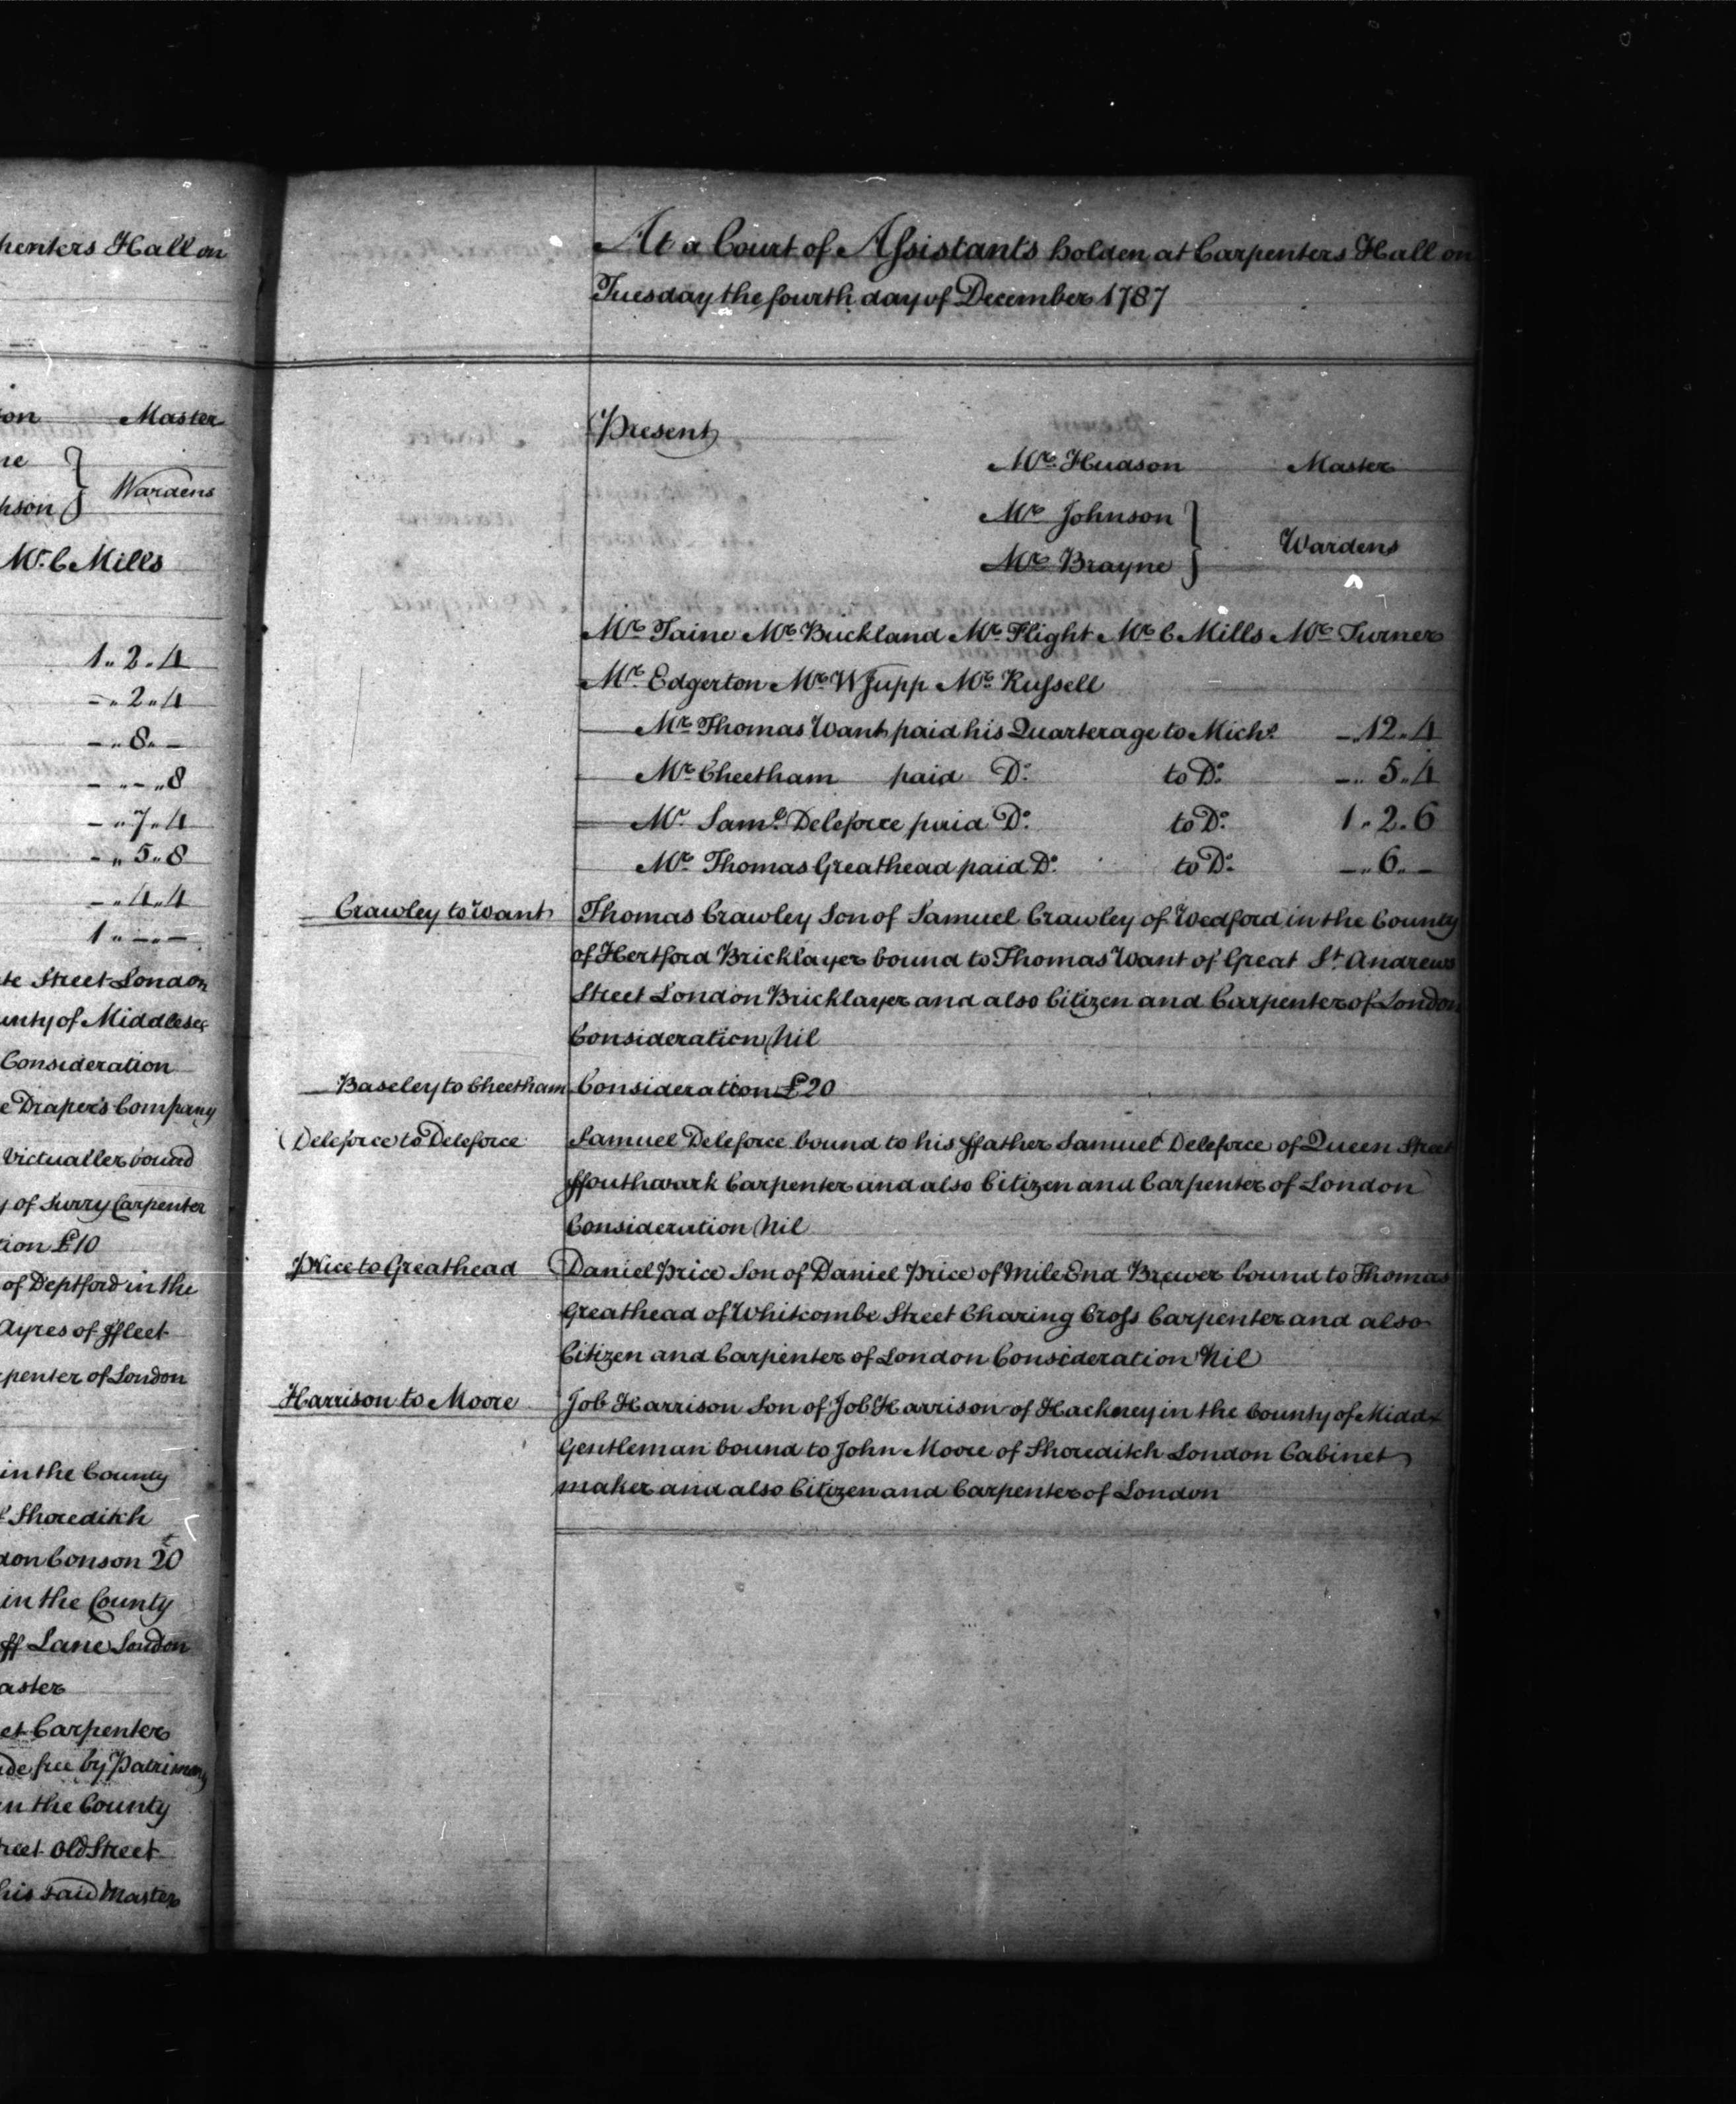 henters Hall on
on Master
ne
Wardens
hson
Mr. C Mills
1 .. 2 .. 4
- .. 2 .. 4
- .. 8 .. -
- .. - .. 8
- .. 7 .. 4
- .. 5 .. 8
- .. 4 .. 4
1 .. - .. -
te Street London
unty of Middlesex
Consideration
e Draper's Company
Victualler bound
y of Surry Carpenter
tion £10
of Deptford in the
Ayres of ffleet
penter of London
in the County
Shoreditch
don Conson £20
in the County
ff Lane London
aster
et Carpenter
de free by Patrimony
in the County
reet Old Street
his said Master
At a Court of Assistants holden at Carpenters Hall on
Tuesday the fourth day of December 1787
Present
Mr. Hudson Master
Mr Johnson
Wardens
Mr Brayne
Mr Taine Mr Buckland Mr Flight Mr C Mills Mr Turner
Mr Edgerton Mr W Jupp Mr Russell
Mr Thomas Want paid his Quarterage to Michs - .. 12 .. 4
Mr Cheetham paid Do. to Do. - .. 5 .. 4
Mr Saml. Deleforce paid Do. to Do. 1 .. 2 .. 6
Mr Thomas Greathead paid Do. to Do. - .. 6 .. -
Crawley to Want Thomas Crawley Son of Samuel Crawley of Wedford in the County
of Hertford Bricklayer bound to Thomas Want of Great St. Andrews
Street London Bricklayer and also Citizen and Carpenter of London
Consideration Nil
Baseley to Cheetham Consideration £20
Deleforce to Deleforce Samuel Deleforce bound to his ffather Samuel Deleforce of Queen Street
ffouthwark Carpenter and also Citizen and Carpenter of London
Consideration Nil
Price to Greathead Daniel Price Son of Daniel Price of Mile End Brewer bound to Thomas
Greathead of Whitcombe Street Charing Cross Carpenter and also
Citizen and Carpenter of London Consideration Nil
Harrison to Moore Job Harrison Son of Job Harrison of Hackney in the County of Middx
Gentleman bound to John Moore of Shoreditch London Cabinet
maker and also Citizen and Carpenter of London